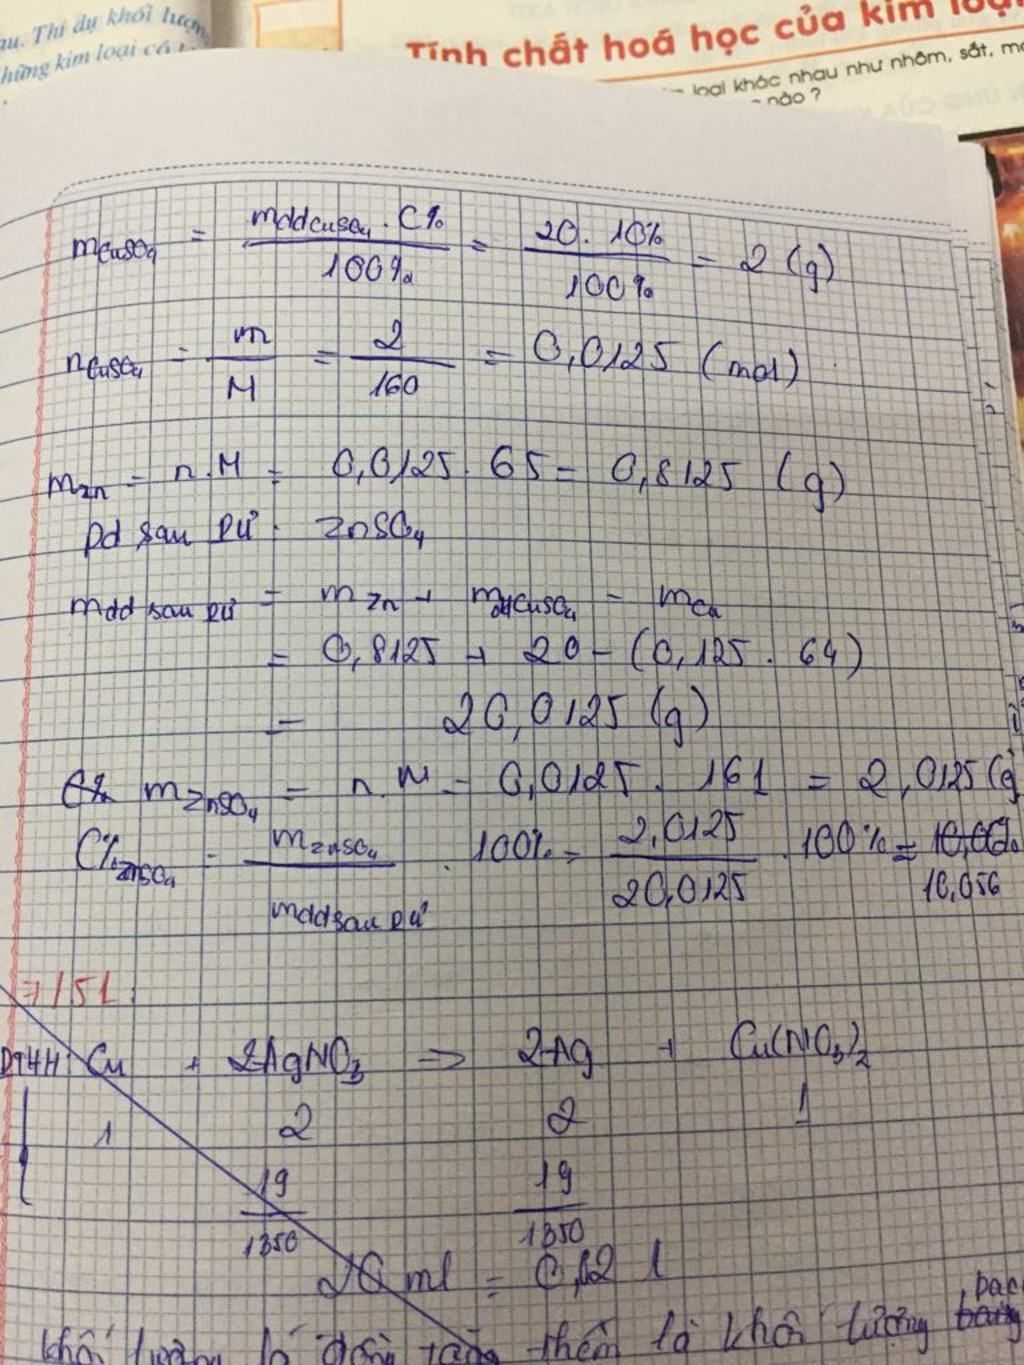 au. Thí dụ khối lượng
những kim loại có
Tính chất hoá học của kim loại
loại khác nhau như nhôm, sắt, mo
nào ?
mCuSO4 = mddCuSO4 . C% / 100% = 20 . 10% / 100% = 2 (g)
nCuSO4 = m / M = 2 / 160 = 0,0125 (mol)
mZn = n.M = 0,0125 . 65 = 0,8125 (g)
Dd sau PƯ : ZnSO4
mdd sau PƯ = mZn + mddCuSO4 - mCu
= 0,8125 + 20 - (0,125 . 64)
= 20,0125 (g)
C% mZnSO4 = n.M = 0,0125 . 161 = 2,0125 (g)
C%ZnSO4 = mZnSO4 / mdd sau PƯ . 100% = 2,0125 / 20,0125 . 100% = 10,06%
10,056
7/51
PTHH: Cu + 2AgNO3 → 2Ag + Cu(NO3)2
1 2 2 1
19/1350 19/1350
20 ml = 0,02 l
khối lượng lá đồng tăng thêm là khối lượng bạc